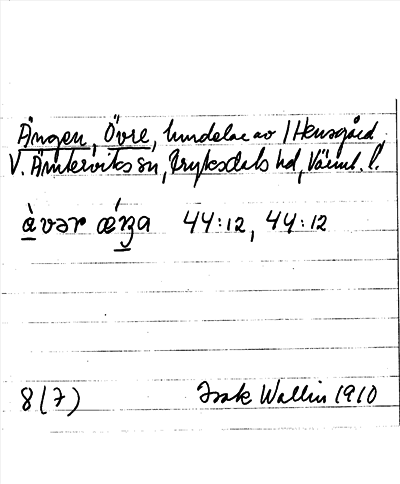 Ängen, Övre, hmdelar av 1 Hensgård
V. Ämterviks sn, Fryksdals hd, Värml. l.
àvər ǽŋa 44:12, 44:12
8(7) Isak Wallin 1910